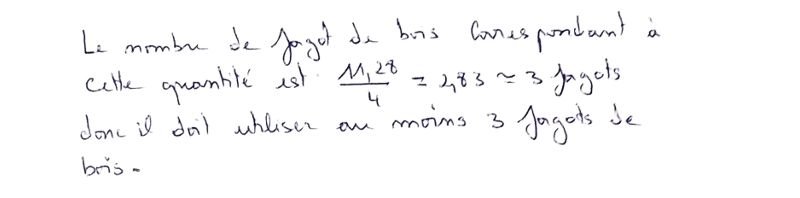 Le nombre de fagot de bois Correspondant à
Cette quantité est 11,28/4 = 2,83 ≈ 3 fagots
donc il doit utiliser au moins 3 fagots de
bois.